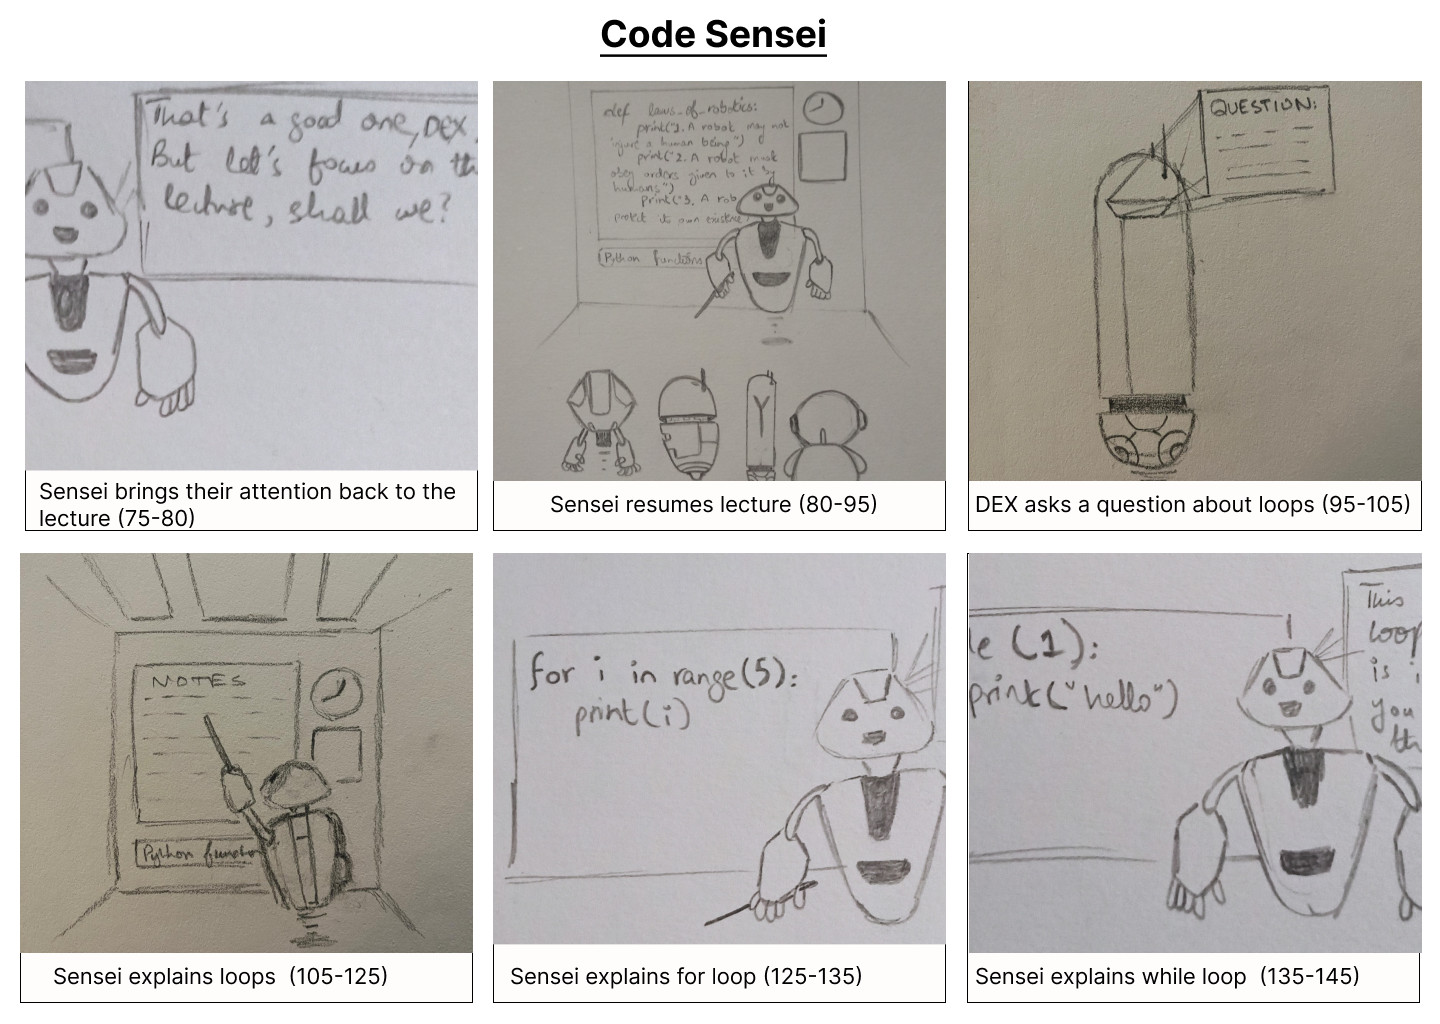 Code Sensei
That's a good one, DEX.
But let's focus on th
lecture, shall we?
Sensei brings their attention back to the
lecture (75-80)
def laws_of_robotics:
print("1. A robot may not
injure a human being")
print("2. A robot must
obey orders given to it by
humans")
print("3. A rob
protect its own existence
Python functions
Sensei resumes lecture (80-95)
QUESTION:
DEX asks a question about loops (95-105)
NOTES
Python function
Sensei explains loops (105-125)
for i in range(5):
print(i)
Sensei explains for loop (125-135)
le (1):
print("hello")
This
loop
is i
you
th
Sensei explains while loop (135-145)